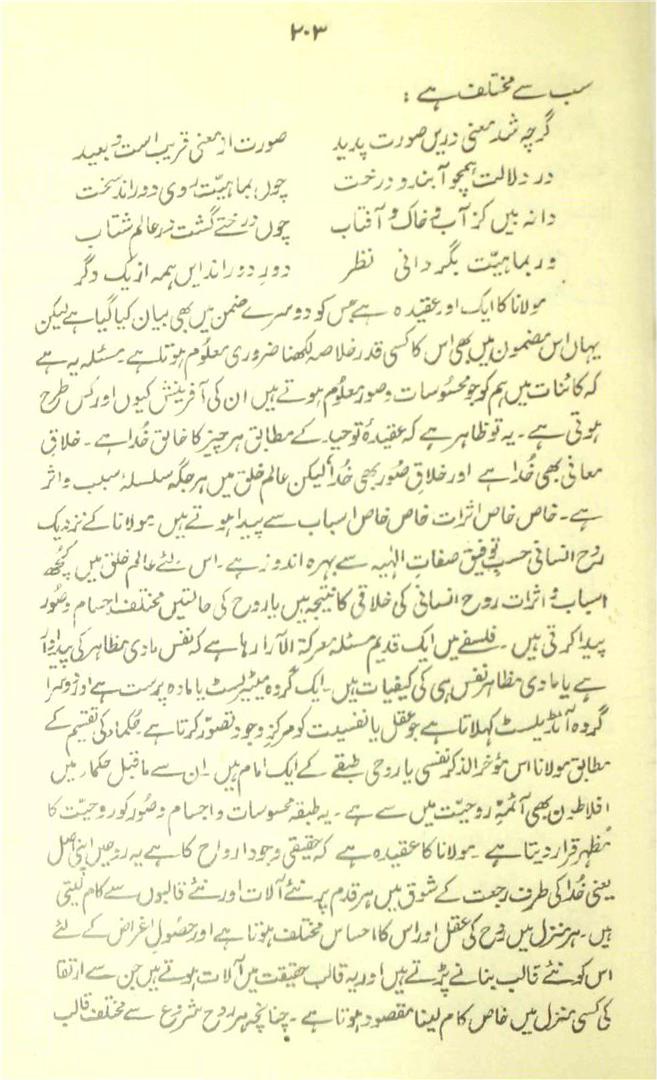 ۲۰۳
سب سے مختلف ہے :
گرچہ شد معنی دریں صورت پدید صورت از معنی قریب است و بعید
در دلالت ہمچو آبند و درخت چوں بماہیّت روی دور اند سخت
دانہ بیں کز آب و خاک و آفتاب چوں درختے گشت در عالم شتاب
ور بماہیّت بگردانی نظر دور دور اند ایں ہمہ از یک دگر
مولانا کا ایک اور عقیدہ ہے جس کو دوسرے ضمن میں بھی بیان کیا گیا ہے لیکن
یہاں اس مضمون میں بھی اس کا کسی قدر خلاصہ لکھنا ضروری معلوم ہوتا ہے۔ مسئلہ یہ ہے
کہ کائنات میں ہم کو جو محسُوسات و صور معلُوم ہوتے ہیں ان کی آفرینش کیوں اور کس طرح
ہوتی ہے۔ یہ تو ظاہر ہے کہ عقیدۂ توحید کے مطابق ہر چیز کا خالق خُدا ہے۔ خلاقِ
معانی بھی خُدا ہے اور خلاقِ صُور بھی خُدا لیکن عالم خلق میں ہر جگہ سلسلۂ سبب و اثر
ہے۔ خاص خاص اثرات خاص خاص اسباب سے پیدا ہوتے ہیں۔ مولانا کے نزدیک
رُوح انسانی حسبِ توفیق صفاتِ الٰہیہ سے بہرہ اندوز ہے۔ اس لئے عالم خلق میں کُچھ
اسباب و اثرات روح انسانی کی خلاقی کا نتیجہ ہیں یا روح کی حالتیں مختلف اجسام و صُور
پیدا کرتی ہیں۔ فلسفے میں ایک قدیم مسئلہ معرکۃ الآرا رہا ہے کہ نفس مادی مظاہر کی پیداوار
ہے یا مادی مظاہر نفس ہی کی کیفیات ہیں۔ ایک گروہ میٹیرلسٹ یا مادہ پرست ہے اور دُوسرا
گروہ آئیڈیلسٹ کہلاتا ہے جو عقل یا نفسیت کو مرکزِ وجود تصوّر کرتا ہے۔ حُکماء کی تقسیم کے
مطابق مولانا اس مؤخر الذکر نفسی یا روحی طبقے کے ایک امام ہیں۔ ان سے ماقبل حکماء میں
افلاطون بھی آئمۂ روحیّت میں سے ہے۔ یہ طبقہ محسوسات و اجسام و صُور کو روحیّت کا
مُظہر قرار دیتا ہے۔ مولانا کا عقیدہ ہے کہ حقیقی وجود ارواح کا ہے یہ روحیں اپنی اصل
یعنی خُدا کی طرف رجعت کے شوق میں ہر قدم پر نئے آلات اور نئے قالبوں سے کام لیتی
ہیں۔ ہر منزل میں رُوح کی عقل اور اس کا احساس مختلف ہوتا ہے اور حصُولِ اغراض کے لئے
اس کو نئے قالب بنانے پڑتے ہیں اور یہ قالب حقیقت میں آلات ہوتے ہیں جن سے ارتقا
کی کسی منزل میں خاص کام لینا مقصود ہوتا ہے۔ چنانچہ ہر روح شروع سے مختلف قالب